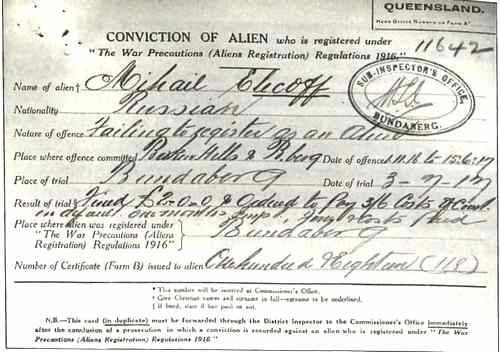 QUEENSLAND.
Head Office Number on Form A*
CONVICTION OF ALIEN who is registered under
"The War Precautions (Aliens Registration) Regulations 1916."
11642
SUB-INSPECTOR'S OFFICE,
BUNDABERG.
Name of alien† Mihail Elecoff
Nationality Russian
Nature of offence Failing to register as an Alien
Place where offence committed Broken Hills & B.berg Date of offence 1.11.16 to 15.6.17
Place of trial Bundaberg Date of trial 3-7-17
Result of trial Fined £2-0-0 & Ordered to Pay 3/6 Costs of Court
in default one month's Fine & Costs Paid
Place where alien was registered under
"The War Precautions (Aliens
Registration) Regulations 1916"
Bundaberg
Number of Certificate (Form B) issued to alien One hundred & Eighteen (118)
* This number will be inserted at Commissioner's Office.
† Give Christian names and surname in full—surname to be underlined.
‡ If fined, state if fine paid or not.
N.B.—This card (in duplicate) must be forwarded through the District Inspector to the Commissioner's Office immediately
after the conclusion of a prosecution in which a conviction is recorded against an alien who is registered under "The War
Precautions (Aliens Registration) Regulations 1916."